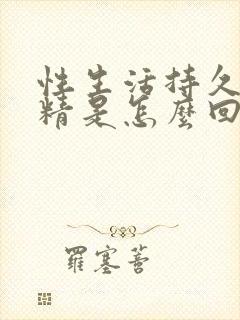 性生活持久
精是怎麼回
羅塞菩